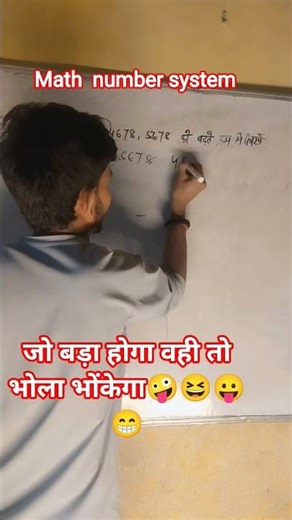 Math number system
4678, 5678 को बढ़ते क्रम में लिखें
5678 4
जो बड़ा होगा वही तो
भोला भोंकेगा🤪😆😛
😁